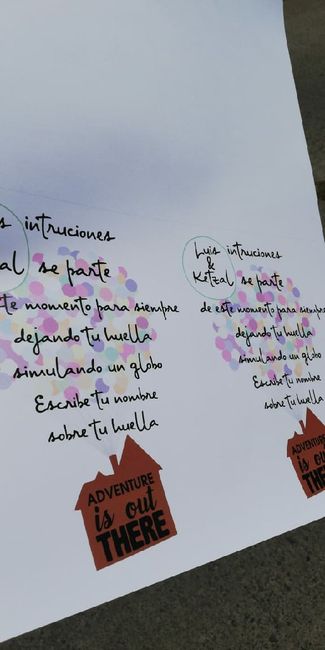 s intruciones
al se parte
te momento para siempre
dejando tu huella
simulando un globo
Escribe tu nombre
sobre tu huella
ADVENTURE
is out
THERE
Luis intruciones
&
Ketzal se parte
de este momento para siempre
dejando tu huella
simulando un globo
Escribe tu nombre
sobre tu huella
ADVENTURE
is ou
THE